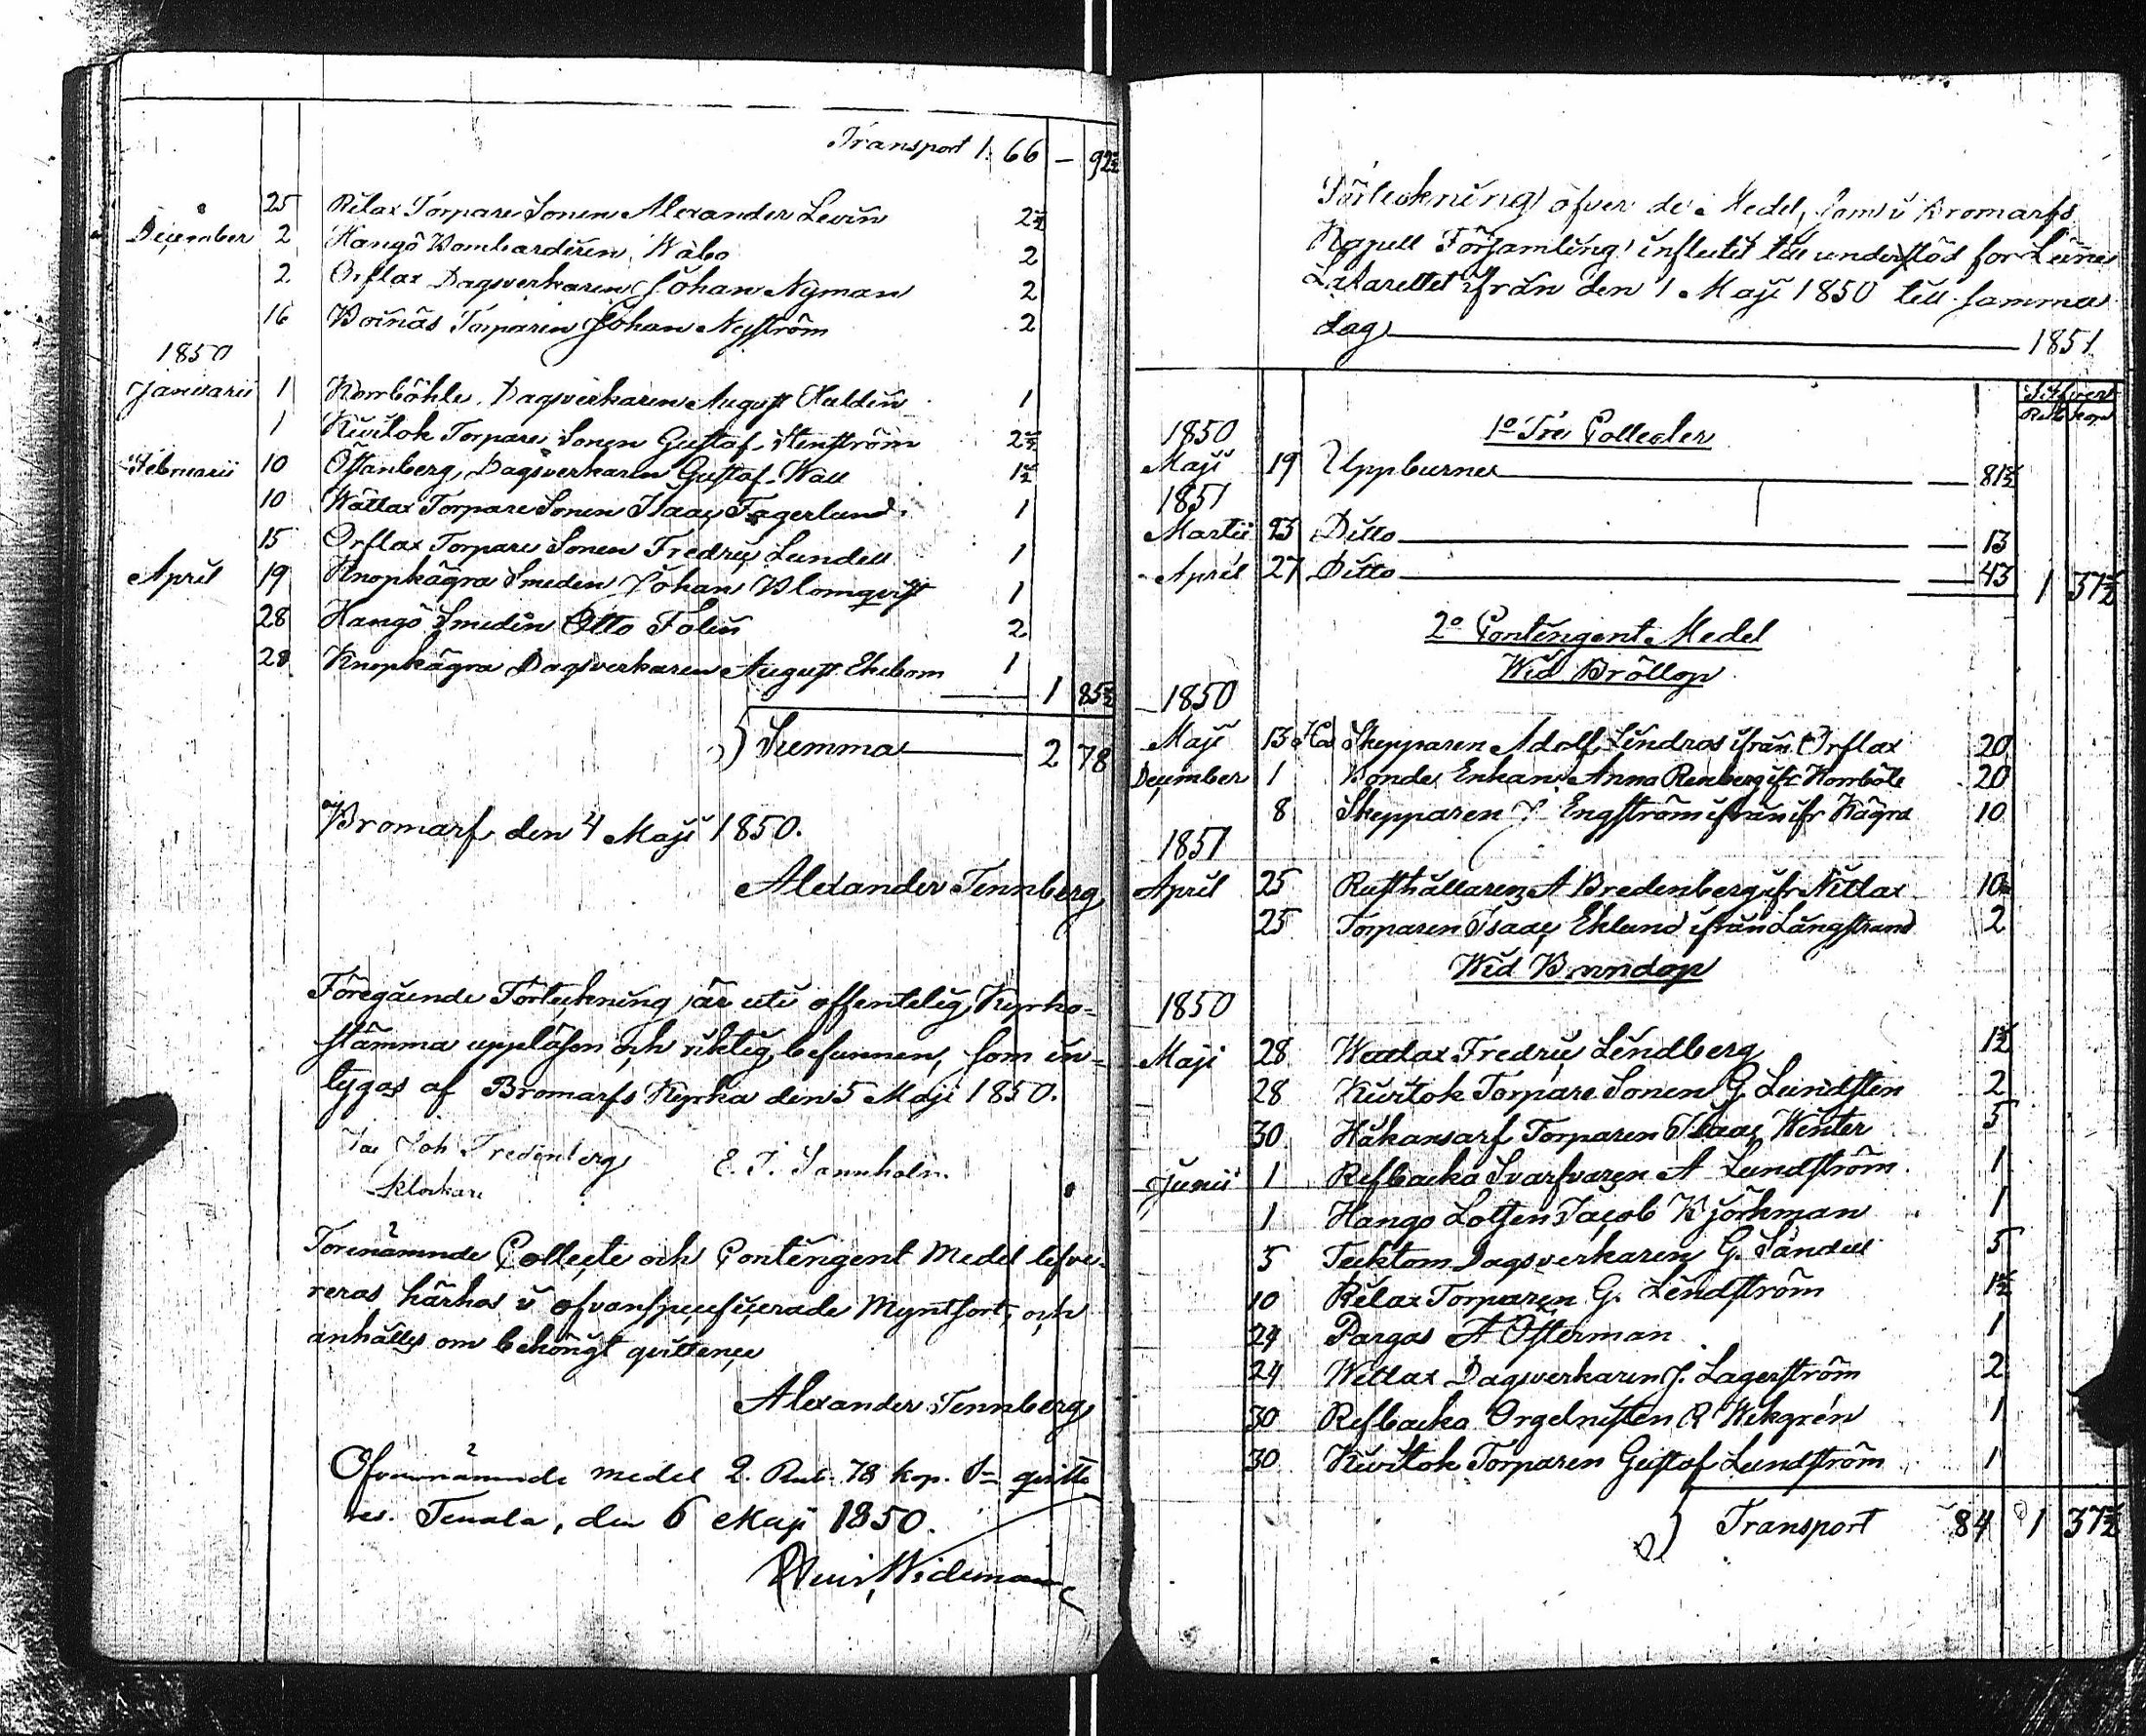 Transport 1. 66 — 92½
25 Rilax Torpare Sonen Alexander Levin 2½
December 2 Hangö Bombardiren Wåbo 2
2 Orflax Dagsverkaren Johan Nyman 2
16 Boinäs Torparen Johan Nyström 2
1850
Januarii 1 Komböhle Dagsverkaren August Huldin 1
1 Kuitok Torpare Sonen Gustaf Stenström 2½
Februarii 10 Öfsanberg Dagsverkaren Gustaf Wall 1½
10 Wättlax Torpare Sonen Isaac Fagerlund 1
15 Orflax Torpare Sonen Fredric Lundell 1
April 19 Knopkägra Smeden Johan Blomqvist 1
28 Hangö Smeden Otto Folin 2
28 Knopkägra Dagsverkaren August Ekebom 1
1 85½
Summa 2 78
Bromarf den 4 Maji 1850.
Alexander Tennberg
Föregående Förteckning är uti offentelig Kyrko-
stämma uppläsen och riktig befunnen, som in-
tygas af Bromarfs Kyrka den 5 Maji 1850.
Joh Fredenberg E. J. Sannholm.
klockare
Förenämnde Collecte och Contingent Medel lefve-
reras härhos i ofvanspecificerade Myntsort, och
anhålles om behörigt qvittence
Alexander Tennberg
Ofvannämnde medel 2. Rub. 78 kop. Sr qvitte-
res. Tenala, den 6 Maji 1850.
Widemann
Förteckning öfver de Medel, som i Bromarfs
Kapell Församling influtit till understöd för Läns
Lazarettet ifrån den 1 Maji 1850 till samma
dag 1851
Silfver
Rub Kop
1850 1o Tre Collecter
Maji 19 Uppburne — 81½
1851
Martii 23 Ditto — 13
April 27 Ditto — 43 1 37½
2o Contingent Medel
Wid Bröllop
1850
Maji 13 Hos Skepparen Adolf Lindros ifrån Orflax 20
December 1 Bonde Enkan Anna Renberg ifr Komböle 20
8 Skepparen J Engström ifrån ifr Kägra 10
1851
April 25 Rusthållaren A Bredenberg ifr Nitlax 10
25 Torparen Isaac Eklund ifrån Långstrand 2
Wid Barndop
1850
Maji 28 Wättlax Fredric Lindberg 1½
28 Kuitok Torpare Sonen G. Lundsten 2
30 Håkansarf Torparen Isaac Winter 5
Junii 1 Refbacka Svarfvaren A Lundström 1
1 Hangö Lotsen Jacob Björkman 1
5 Tecktom Dagsverkaren G. Sandell 5
10 Rilax Torparen G. Lindström 1½
24 Pargas A Österman 1
24 Wettlax Dagsverkaren J. Lagerström 2
30 Refbacka Orgelnisten R Wikgrén 1
30 Kuitok Torparen Gustaf Lundström 1
Transport 84 1 37½